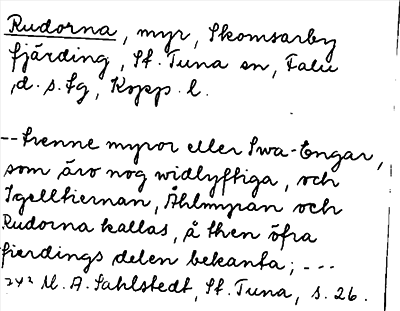 Rudorna, myr, Skomsarby
fjärding, St. Tuna sn, Falu
d.s. fg, Kopp. l.
--trenne myror eller Swa-Engar,
som äro nog widlyftiga, och
Igelltiernan, Åhlmyran och
Rudorna kallas, å then öfra
fierdings delen bekanta; ---
M. A. Sahlstedt, St. Tuna, s. 26.